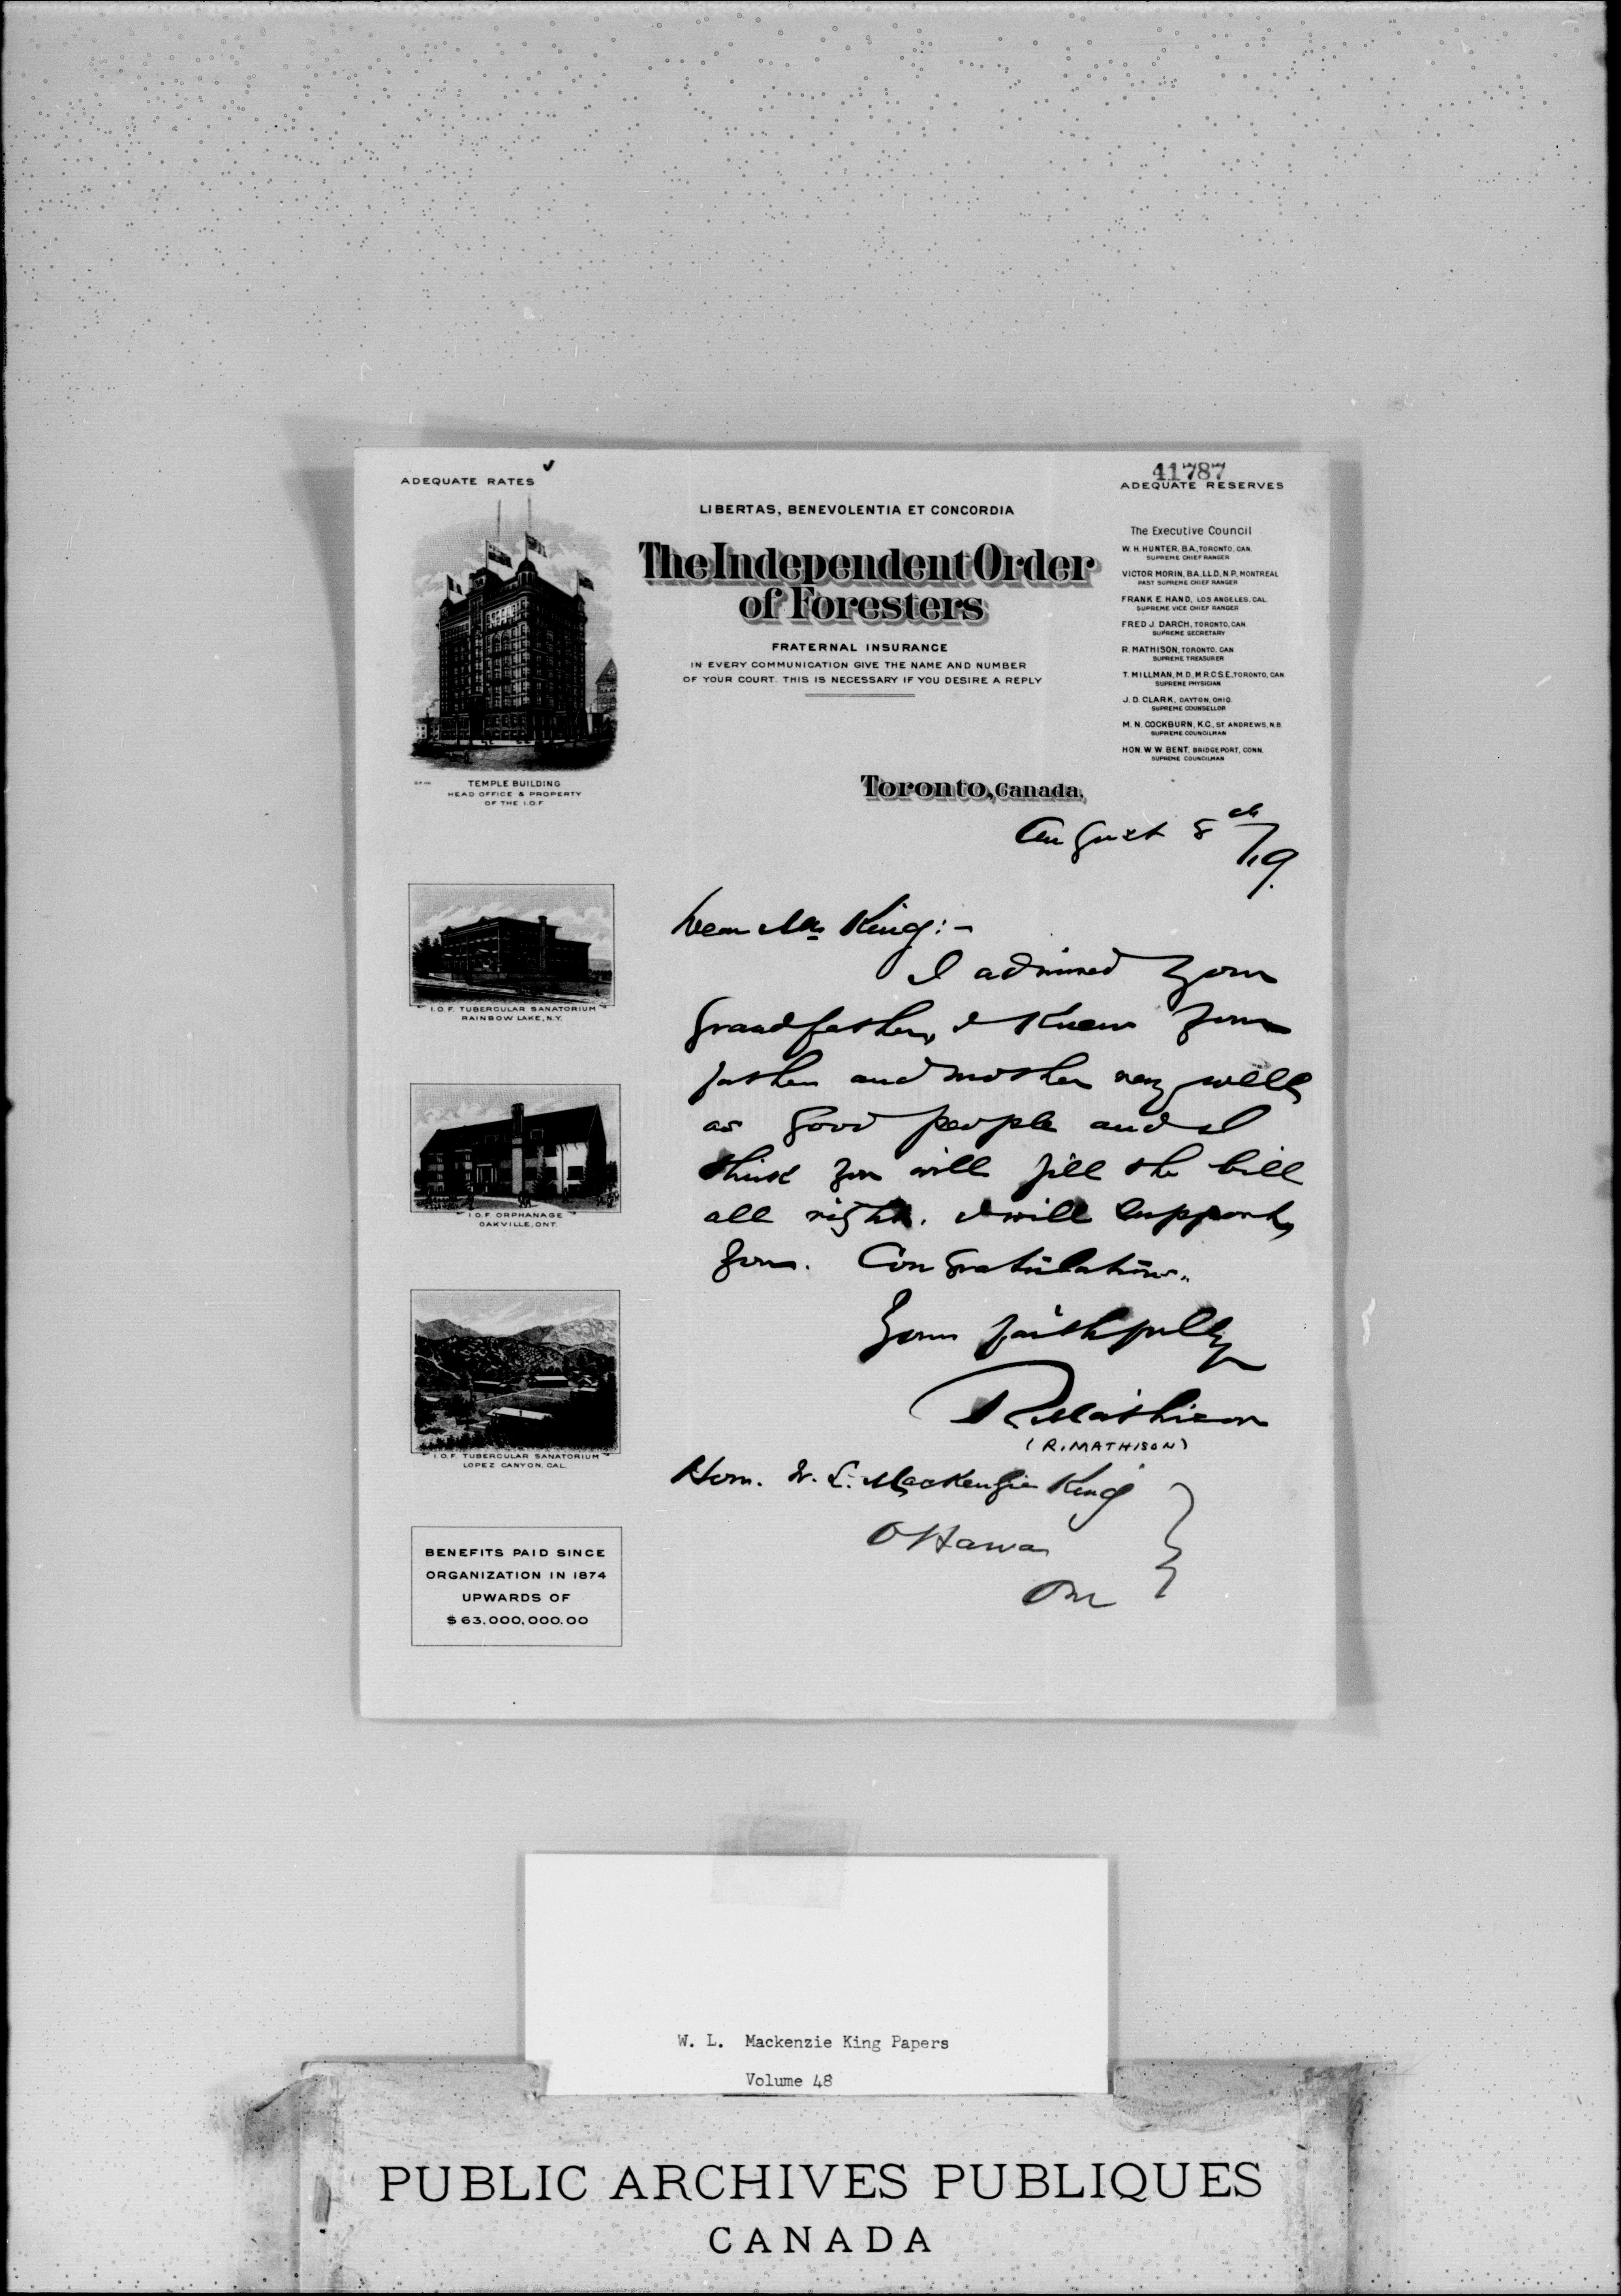 41787
ADEQUATE RATES
ADEQUATE RESERVES
LIBERTAS, BENEVOLENTIA ET CONCORDIA
The Independent Order
of Foresters
FRATERNAL INSURANCE
IN EVERY COMMUNICATION GIVE THE NAME AND NUMBER
OF YOUR COURT. THIS IS NECESSARY IF YOU DESIRE A REPLY
The Executive Council
W. H. HUNTER, B.A., TORONTO, CAN.
SUPREME CHIEF RANGER
VICTOR MORIN, B.A., LL.D., N.P., MONTREAL
PAST SUPREME CHIEF RANGER
FRANK E. HAND, LOS ANGELES, CAL.
SUPREME VICE CHIEF RANGER
FRED J. DARCH, TORONTO, CAN.
SUPREME SECRETARY
R. MATHISON, TORONTO, CAN
SUPREME TREASURER
T. MILLMAN, M.D., M.R.C.S.E., TORONTO, CAN.
SUPREME PHYSICIAN
J. D. CLARK, DAYTON, OHIO.
SUPREME COUNSELLOR
M. N. COCKBURN, K.C., ST. ANDREWS, N.B.
SUPREME COUNCILMAN
HON. W. W. BENT, BRIDGEPORT, CONN.
SUPREME COUNCILMAN
TEMPLE BUILDING
HEAD OFFICE & PROPERTY
OF THE I.O.F.
Toronto, Canada,
August 8th/19.
Dear Mr King:-
I admired your
Grandfather, I knew your
father and mother very well,
as good people and I
think you will fill the bill
all right. I will support
you. Congratulations.
Yours faithfully
R Mathison
(R. MATHISON)
Hon. W. L. MacKenzie King
Ottawa
Ont
I.O.F. TUBERCULAR SANATORIUM
RAINBOW LAKE, N.Y.
I.O.F. ORPHANAGE
OAKVILLE, ONT.
I.O.F. TUBERCULAR SANATORIUM
LOPEZ CANYON, CAL.
BENEFITS PAID SINCE
ORGANIZATION IN 1874
UPWARDS OF
$63,000,000.00
W. L. Mackenzie King Papers
Volume 48
PUBLIC ARCHIVES PUBLIQUES
CANADA